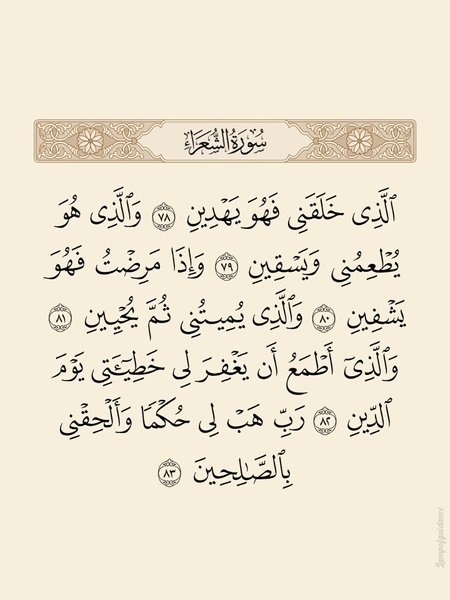 سُورَةُ الشُّعَرَاءِ
ٱلَّذِى خَلَقَنِى فَهُوَ يَهْدِينِ ٧٨ وَٱلَّذِى هُوَ
يُطْعِمُنِى وَيَسْقِينِ ٧٩ وَإِذَا مَرِضْتُ فَهُوَ
يَشْفِينِ ٨٠ وَٱلَّذِى يُمِيتُنِى ثُمَّ يُحْيِينِ ٨١
وَٱلَّذِىٓ أَطْمَعُ أَن يَغْفِرَ لِى خَطِيٓـَٔتِى يَوْمَ
ٱلدِّينِ ٨٢ رَبِّ هَبْ لِى حُكْمًا وَأَلْحِقْنِى
بِٱلصَّٰلِحِينَ ٨٣
Lampofguidance